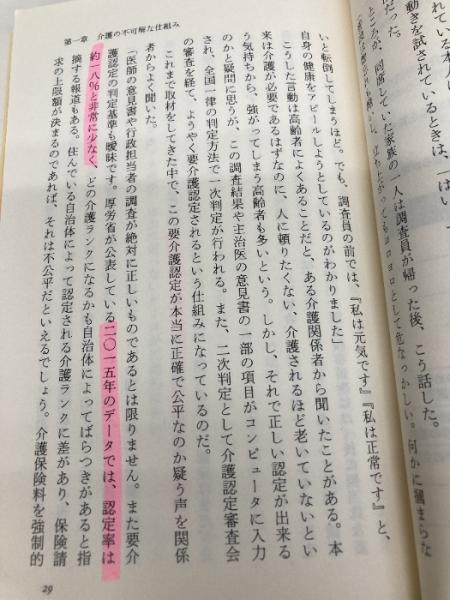 第一章 介護の不可解な仕組み
れている本人
動きを試されているときは、「はい
だった。
ところが、同席していた家族の一人は調査員が帰った後、こう話した。
ヨロヨロとして危なっかしい。何かに掴まらな
いと転倒してしまうほど。でも、調査員の前では、『私は元気です』『私は正常です』と、
自身の健康をアピールしようとしているのがわかりました」
こうした言動は高齢者によくあることだと、ある介護関係者から聞いたことがある。本
来は介護が必要であるはずなのに、人に頼りたくない、介護されるほど老いていないとい
う気持ちから、強がってしまう高齢者も多いという。しかし、それで正しい認定が出来る
のかと疑問に思うが、この調査結果や主治医の意見書の一部の項目がコンピュータに入力
され、全国一律の判定方法で一次判定が行われる。また、二次判定として介護認定審査会
の審査を経て、ようやく要介護認定されるという仕組みになっているのだ。
これまで取材をしてきた中で、この要介護認定が本当に正確で公平なのか疑う声を関係
者からよく聞いた。
「医師の意見書や行政担当者の調査が絶対に正しいものであるとは限りません。また要介
護認定の判定基準も曖昧です。厚労省が公表している二〇一五年のデータでは、認定率は
約一八％と非常に少なく、どの介護ランクになるかも自治体によってばらつきがあると指
摘する報道もある。住んでいる自治体によって認定される介護ランクに差があり、保険請
求の上限額が決まるのであれば、それは不公平だといえるでしょう。介護保険料を強制的
29